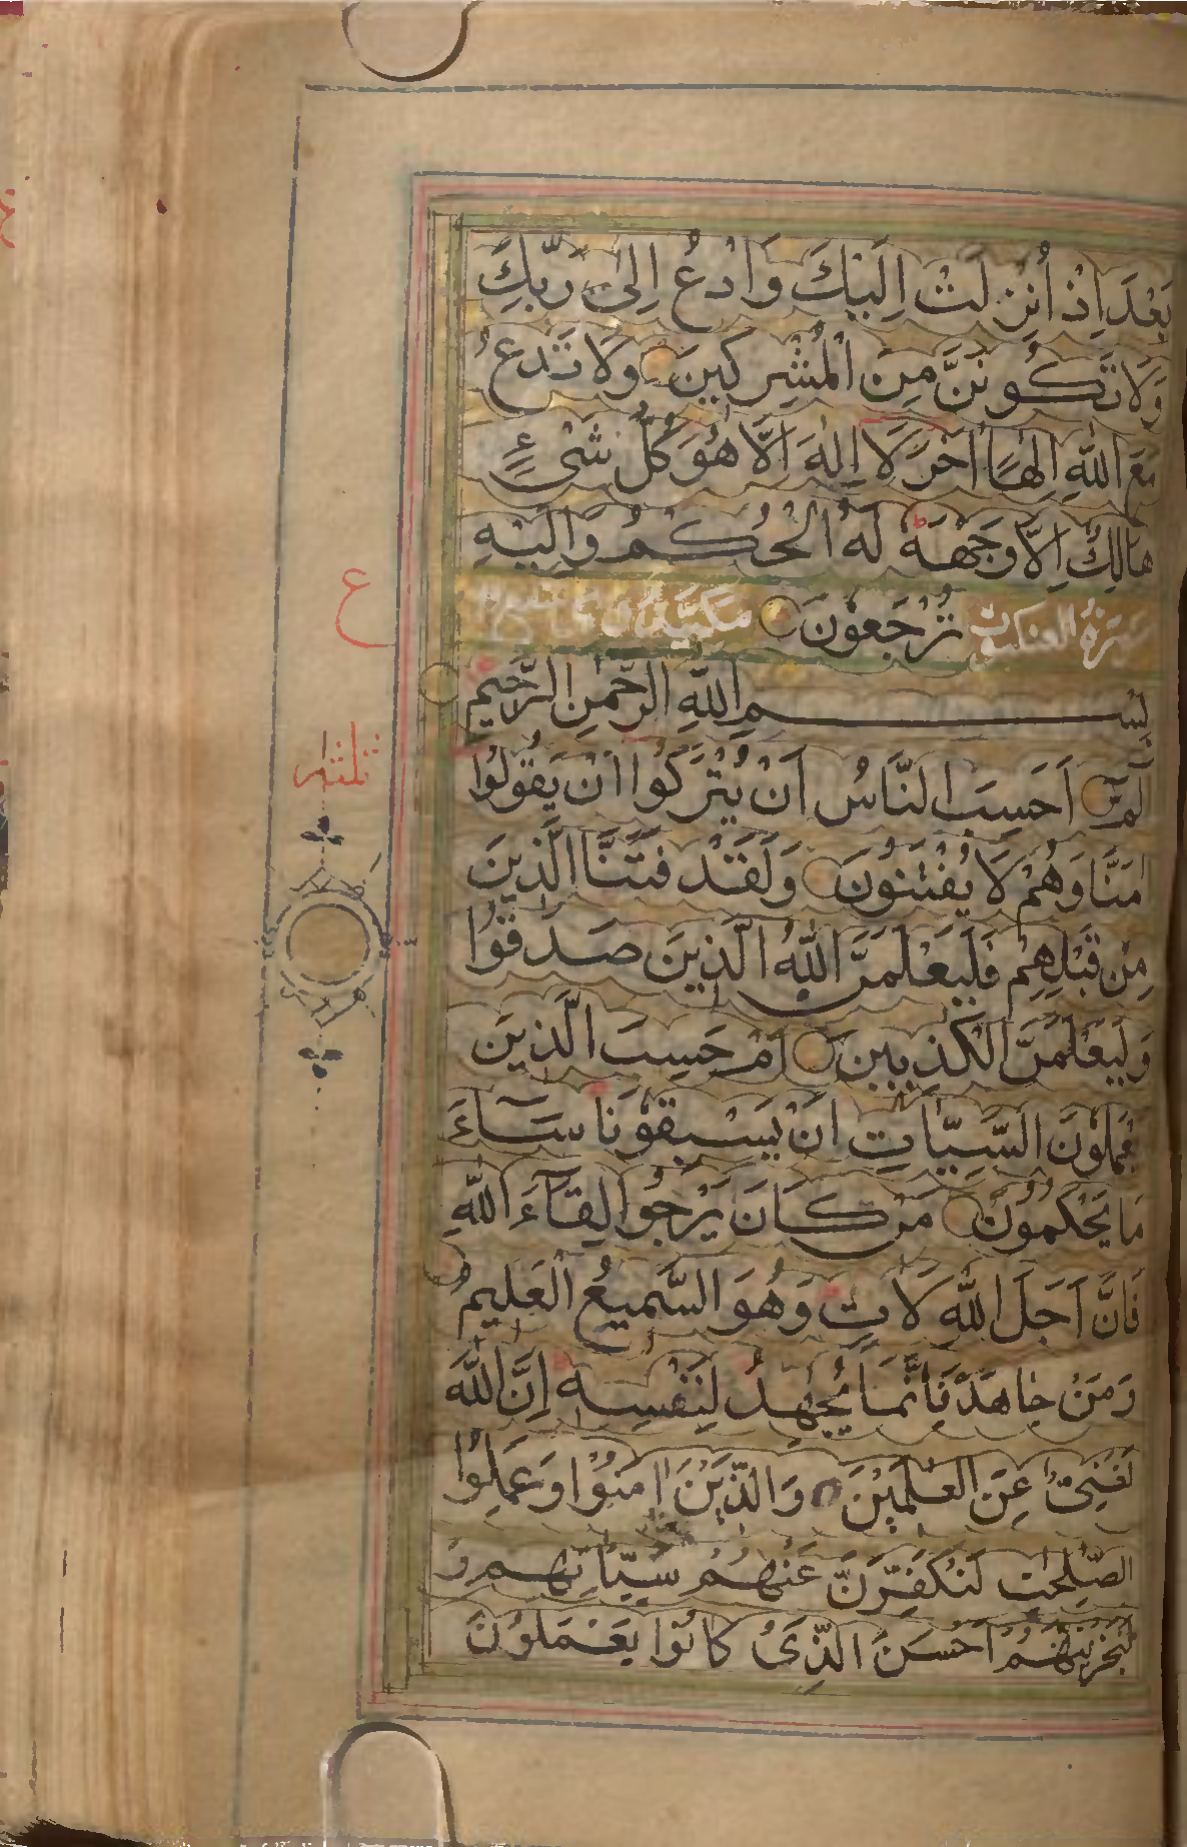 بَعْدَ اِذْ اُنْزِلَتْ اِلَيْكَ وَادْعُ اِلىٰ رَبِّكَ
وَلَا تَكُونَنَّ مِنَ الْمُشْرِكِينَ وَلَا تَدْعُ
مَعَ اللهِ اِلٰهًا اٰخَرَ لَا اِلٰهَ اِلَّا هُوَ كُلُّ شَىْءٍ
هَالِكٌ اِلَّا وَجْهَهٗ لَهُ الْحُكْمُ وَاِلَيْهِ
سورة العنكبوت تُرْجَعُونَ مكية
بِسْمِ اللهِ الرَّحْمٰنِ الرَّحِيمِ
الٓمّٓ اَحَسِبَ النَّاسُ اَنْ يُتْرَكُوا اَنْ يَقُولُوا
اٰمَنَّا وَهُمْ لَا يُفْتَنُونَ وَلَقَدْ فَتَنَّا الَّذِينَ
مِنْ قَبْلِهِمْ فَلَيَعْلَمَنَّ اللهُ الَّذِينَ صَدَقُوا
وَلَيَعْلَمَنَّ الْكٰذِبِينَ اَمْ حَسِبَ الَّذِينَ
يَعْمَلُونَ السَّيِّاٰتِ اَنْ يَسْبِقُونَا سَآءَ
مَا يَحْكُمُونَ مَنْ كَانَ يَرْجُوا لِقَآءَ اللهِ
فَاِنَّ اَجَلَ اللهِ لَاٰتٍ وَهُوَ السَّمِيعُ الْعَلِيمُ
وَمَنْ جَاهَدَ فَاِنَّمَا يُجَاهِدُ لِنَفْسِهِ اِنَّ اللهَ
لَغَنِىٌّ عَنِ الْعٰلَمِيْنَ وَالَّذِيْنَ اٰمَنُوْا وَعَمِلُوا
الصّٰلِحٰتِ لَنُكَفِّرَنَّ عَنْهُمْ سَيِّاٰتِهِمْ وَ
لَنَجْزِيَنَّهُمْ اَحْسَنَ الَّذِىْ كَانُوا يَعْمَلُوْنَ
ع
ثلثة